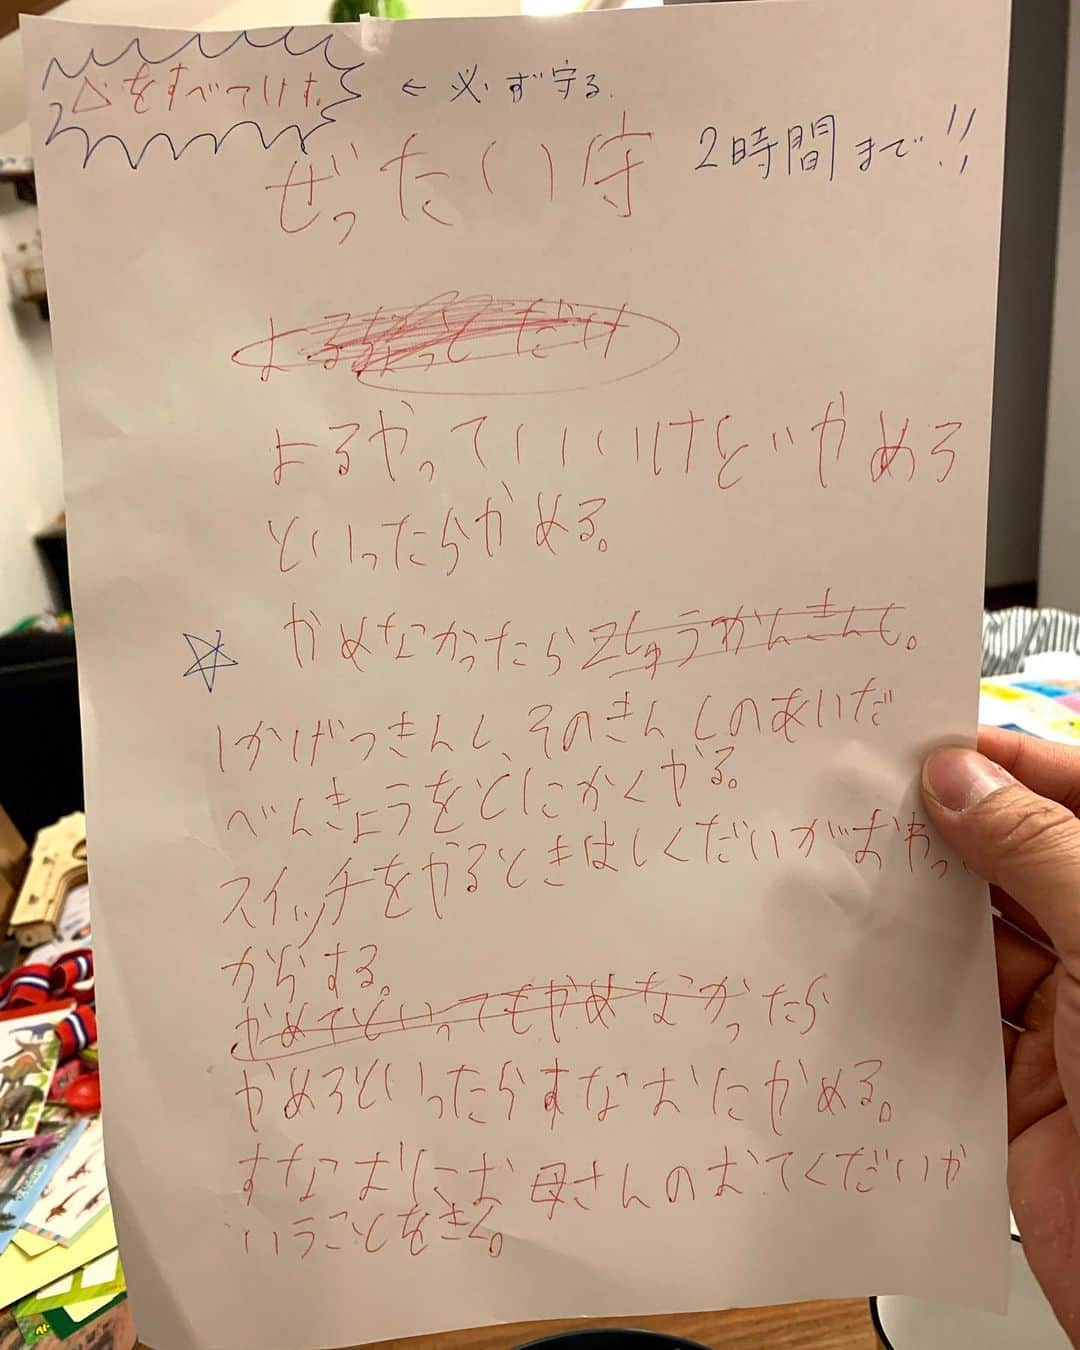 心をすべてけす。 ← 必ず守る。
ぜったい守 2時間まで!!
よるちょっとだけ
よるやっていいけどいやめろ
といったらやめる。
やめなかったら2しゅうかんきんし。
1かげつきんし、そのきんしのあいだ
べんきょうをとにかくやる。
スイッチをやるときはしくだいがおわっ
からする。
やめてといってもやめなかったら
やめろといったらすなおにやめる。
すなおにお母さんのおてくだいか
いうことをきく。